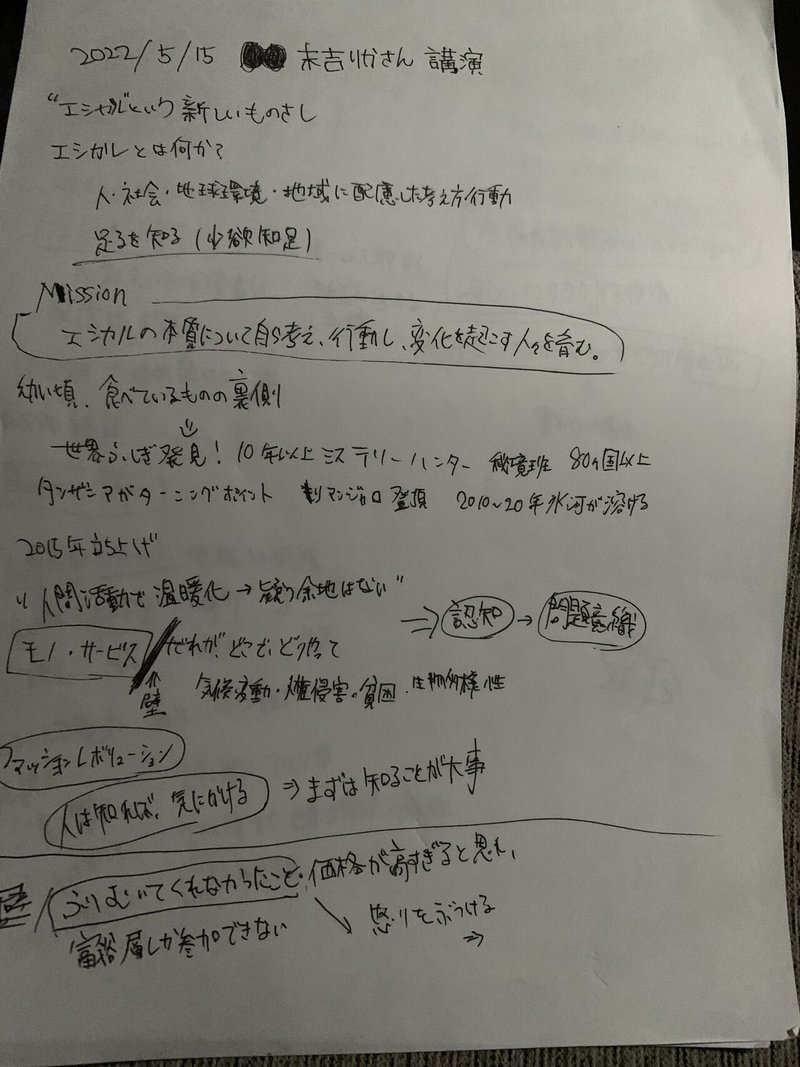 2022/5/15 末吉りかさん 講演
"エシカル"という新しいものさし
エシカルとは何か?
人・社会・地球環境・地域に配慮した考え方・行動
足るを知る(少欲知足)
Mission
エシカルの本質について自ら考え、行動し、変化を起こす人々を育む。
幼い頃、食べているものの裏側
世界ふしぎ発見! 10年以上 ミステリーハンター 秘境班 80ヶ国以上
タンザニアがターニングポイント キリマンジャロ 登頂 2010〜20年 氷河が溶ける
2015年立ち上げ
"人間活動で温暖化→疑う余地はない"
⇒ 認知 → 問題意識
モノ・サービス / だれが、どこで、どうやって
壁 気候変動・人権侵害・貧困・生物多様性
ファッションレボリューション
人は知れば、気にかける ⇒ まずは知ることが大事
壁 / ふりむいてくれなかったこと、価格が高すぎると思い、
富裕層しか参加できない ↘ 怒りをぶつける
⇒